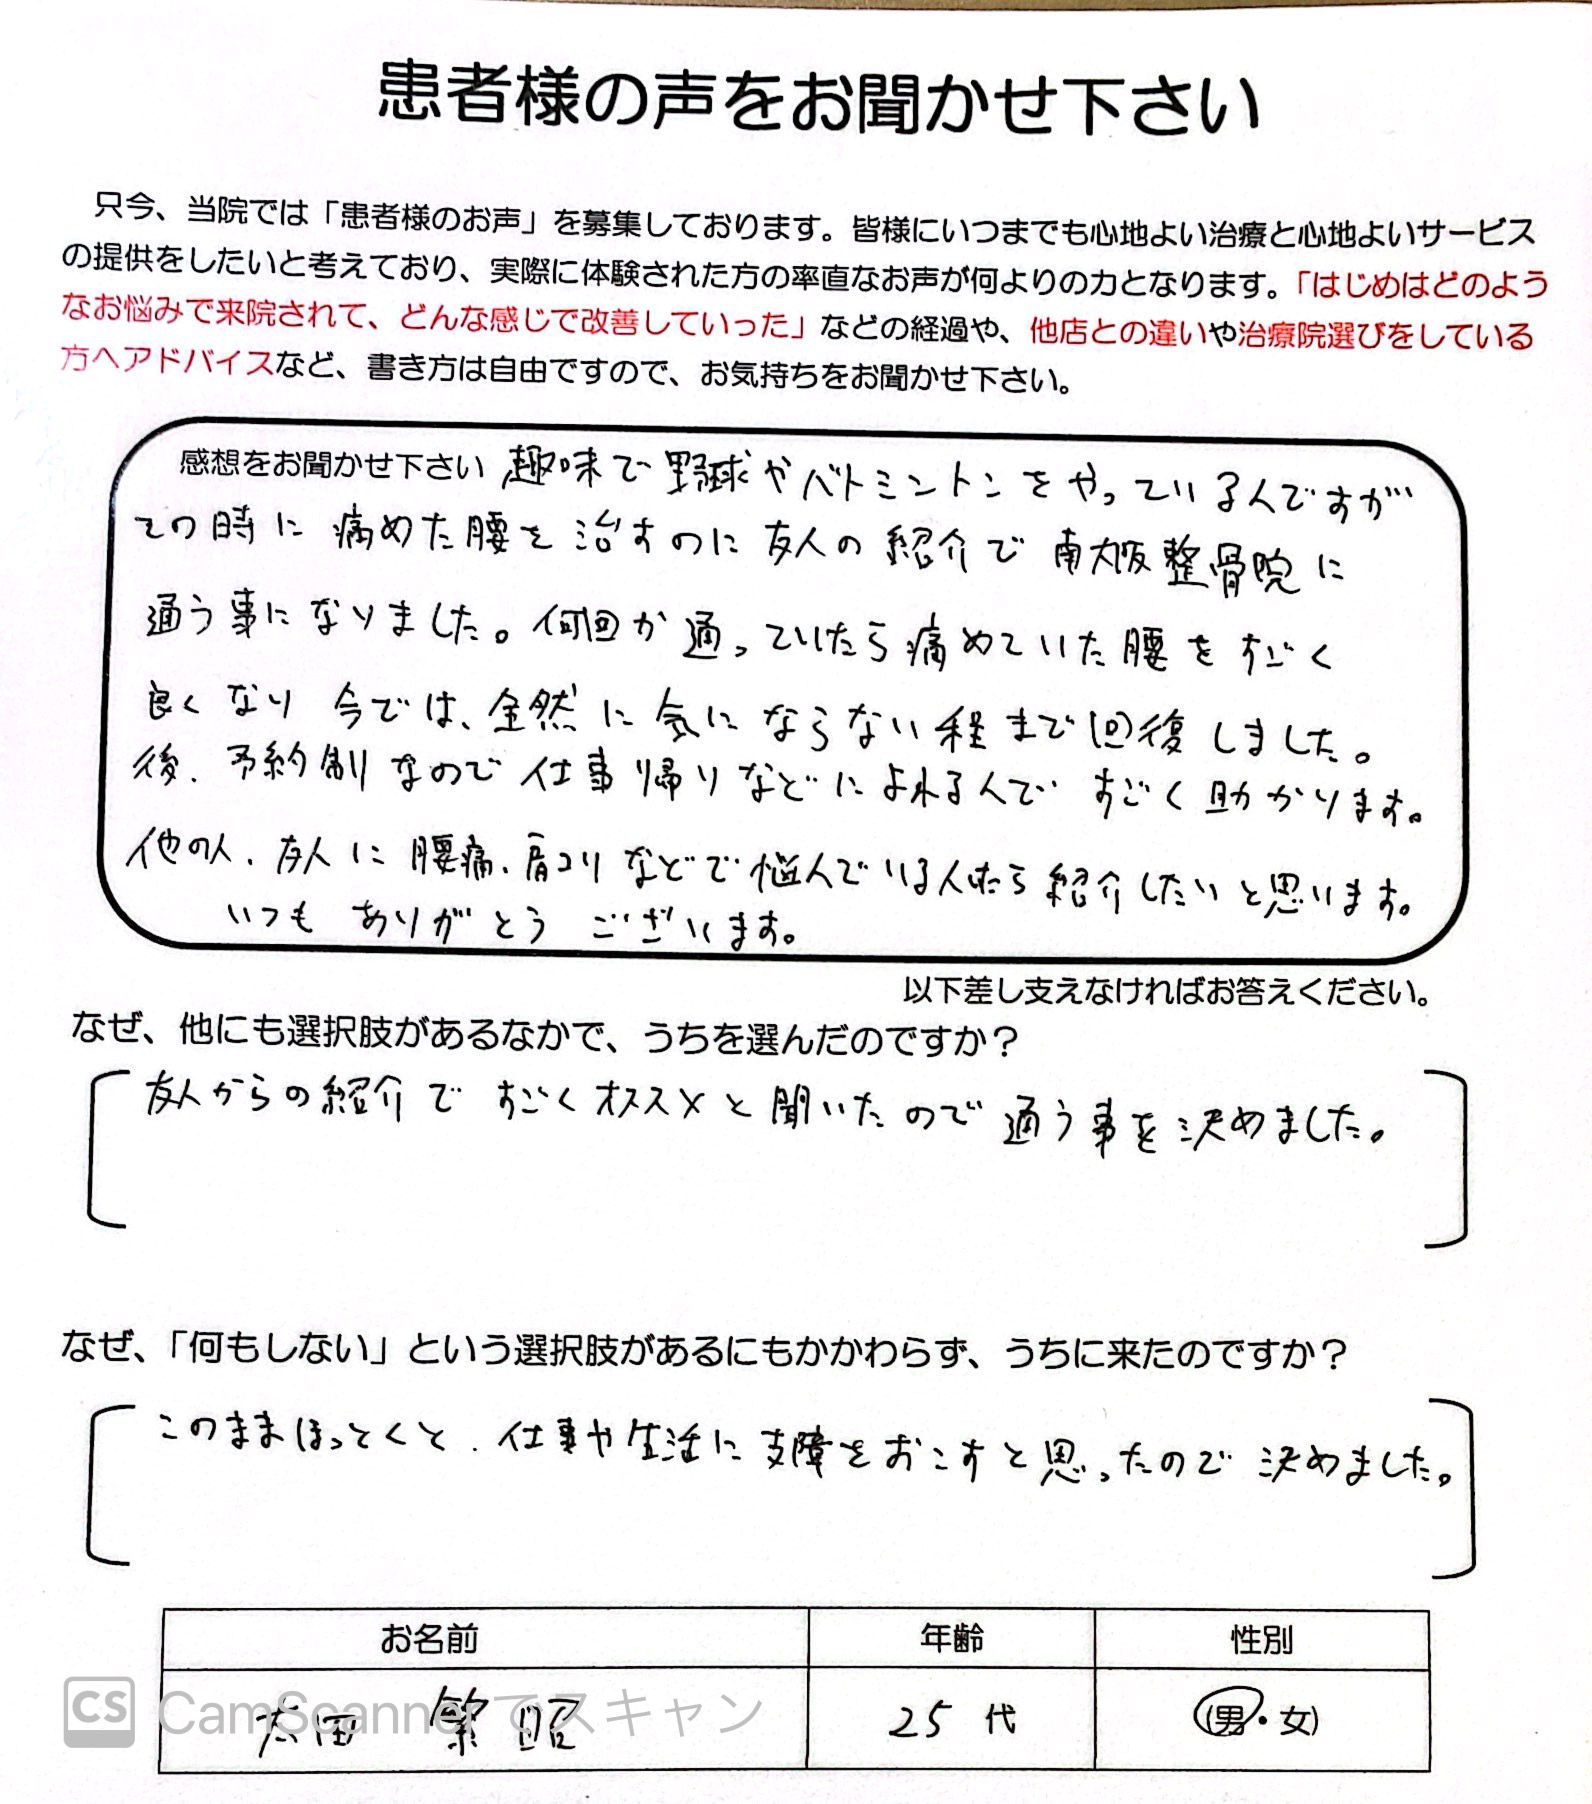 患者様の声をお聞かせ下さい
只今、当院では「患者様のお声」を募集しております。皆様にいつまでも心地よい治療と心地よいサービス
の提供をしたいと考えており、実際に体験された方の率直なお声が何よりの力となります。「はじめはどのよう
なお悩みで来院されて、どんな感じで改善していった」などの経過や、他店との違いや治療院選びをしている
方へアドバイスなど、書き方は自由ですので、お気持ちをお聞かせ下さい。
感想をお聞かせ下さい 趣味で野球やバトミントンをやっているんですが
その時に痛めた腰を治すのに友人の紹介で南大阪整骨院に
通う事になりました。何回か通っていたら痛めていた腰をすごく
良くなり 今では、全然に気にならない程まで回復しました。
後、予約制なので仕事帰りなどによれるんですごく助かります。
他の人、友人に腰痛、肩コリなどで悩んでいる人たら紹介したいと思います。
いつも ありがとう ございます。
以下差し支えなければお答えください。
なぜ、他にも選択肢があるなかで、うちを選んだのですか？
友人からの紹介で すごくオススメと聞いたので通う事を決めました。
なぜ、「何もしない」という選択肢があるにもかかわらず、うちに来たのですか？
このままほっとくと、仕事や生活に支障をおこすと思ったので決めました。
お名前 年齢 性別
太田 繁昭 25代 (男・女)
CS CamScannerでスキャン